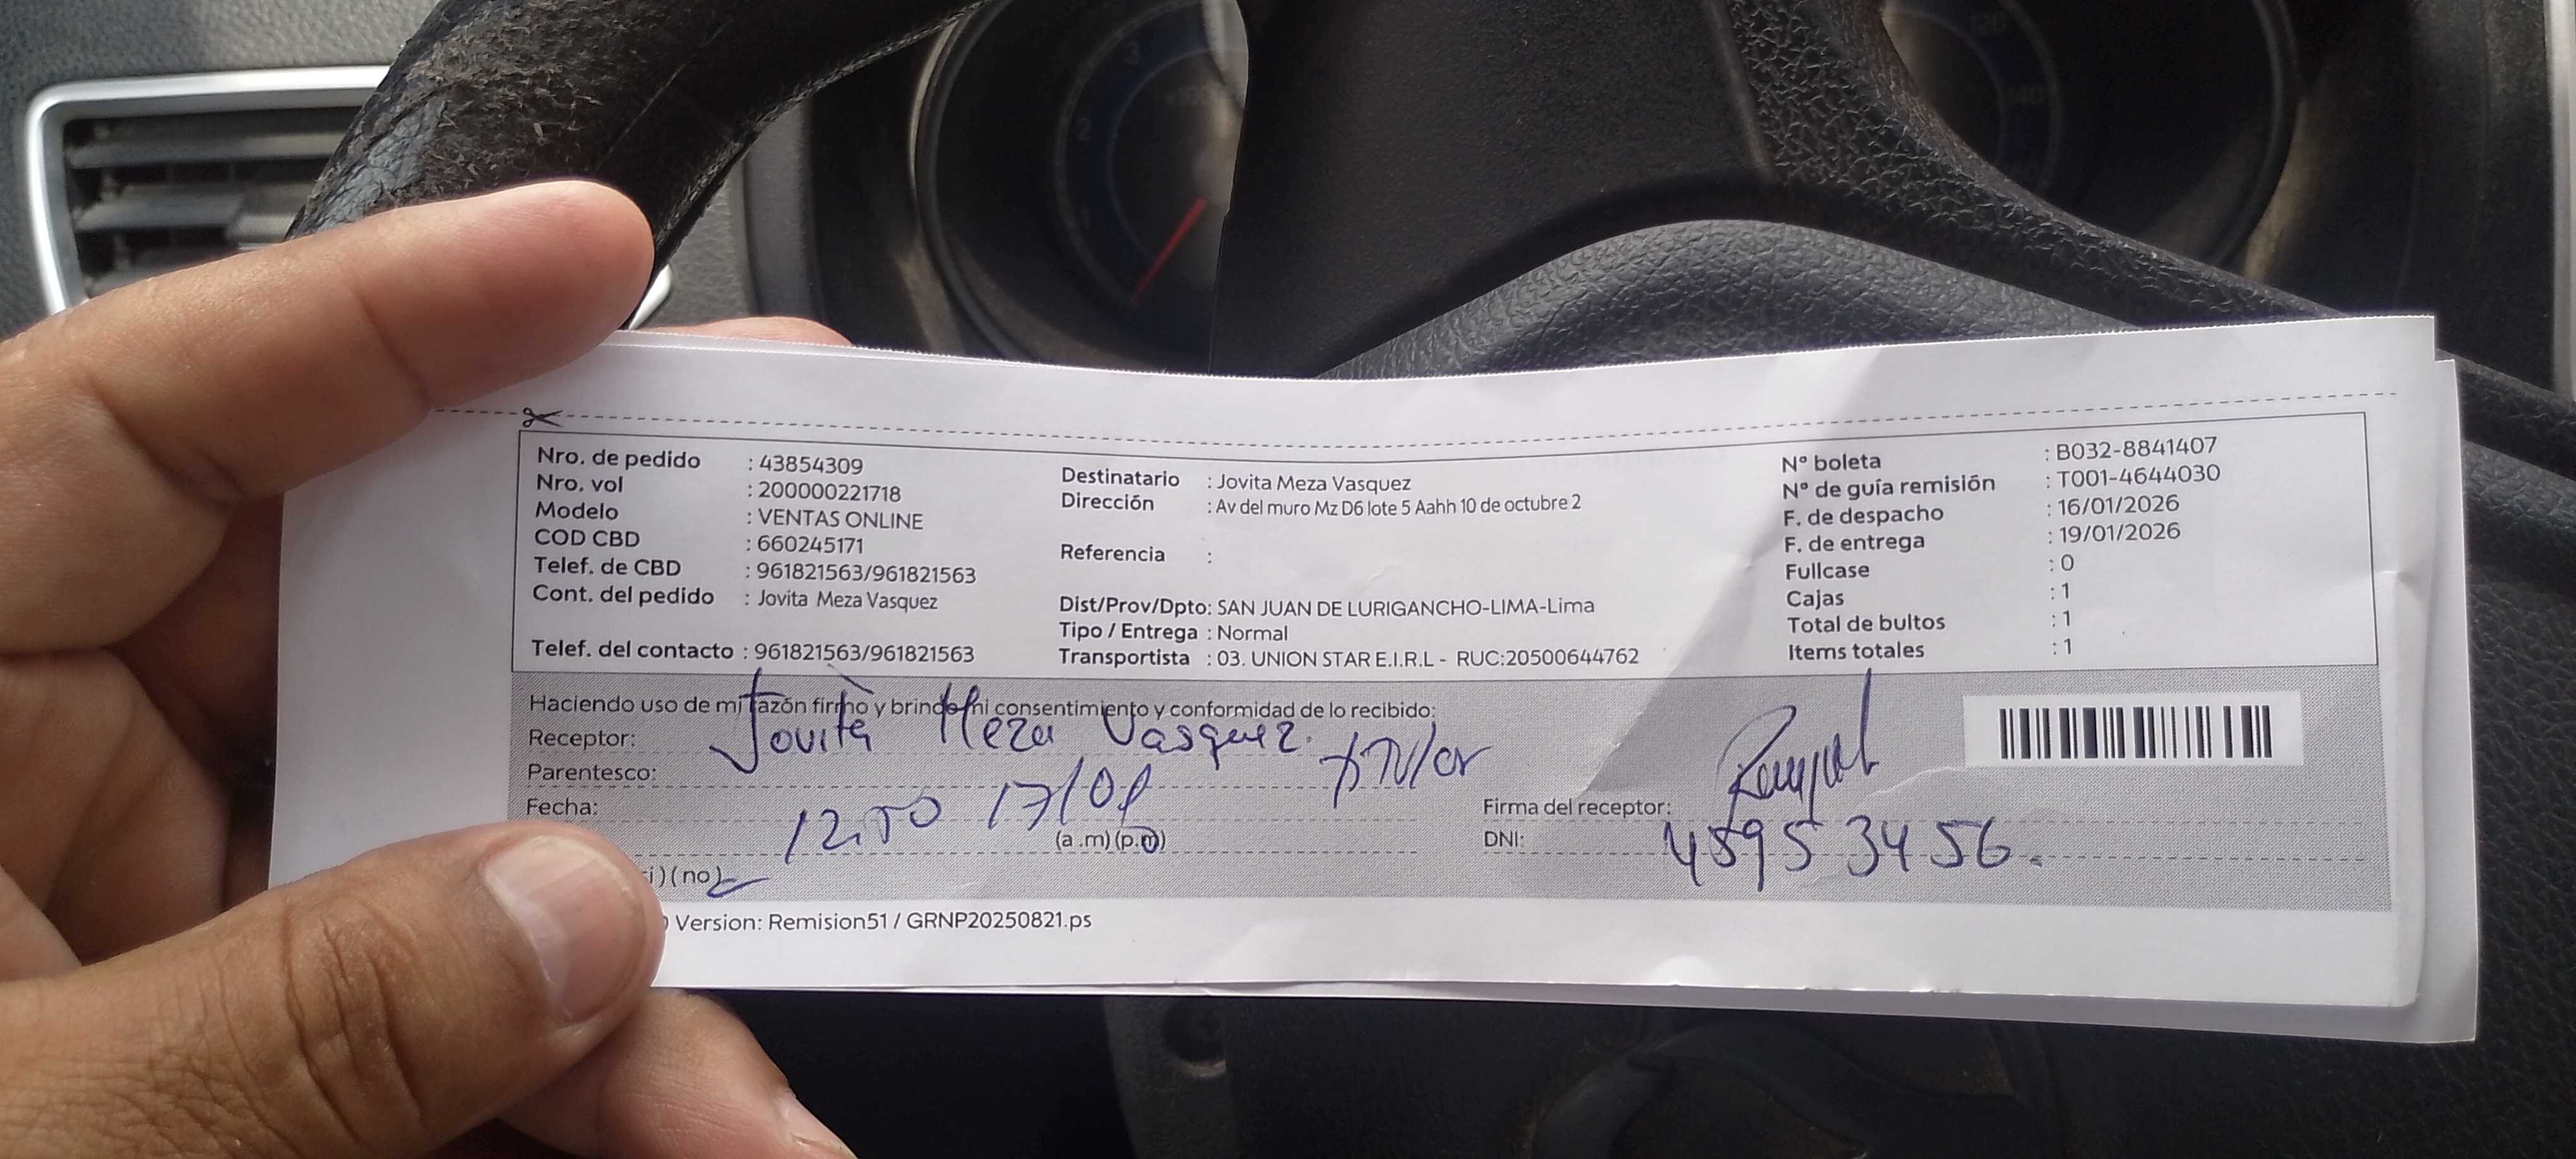 Nro. de pedido : 43854309
Nro. vol : 200000221718
Modelo : VENTAS ONLINE
COD CBD : 660245171
Telef. de CBD : 961821563/961821563
Cont. del pedido : Jovita Meza Vasquez
Telef. del contacto : 961821563/961821563
Destinatario : Jovita Meza Vasquez
Dirección : Av del muro Mz D6 lote 5 Aahh 10 de octubre 2
Referencia :
Dist/Prov/Dpto: SAN JUAN DE LURIGANCHO-LIMA-Lima
Tipo / Entrega : Normal
Transportista : 03. UNION STAR E.I.R.L - RUC:20500644762
Nº boleta : B032-8841407
Nº de guía remisión : T001-4644030
F. de despacho : 16/01/2026
F. de entrega : 19/01/2026
Fullcase : 0
Cajas : 1
Total de bultos : 1
Items totales : 1
Haciendo uso de mi razón firmo y brindo mi consentimiento y conformidad de lo recibido:
Receptor: Jovita Meza Vasquez.
Parentesco:
Fecha: 17/01
12:50 (a .m) (p.m)
i ) ( no )
Firma del receptor:
DNI: 45953456.
Version: Remision51 / GRNP20250821.ps